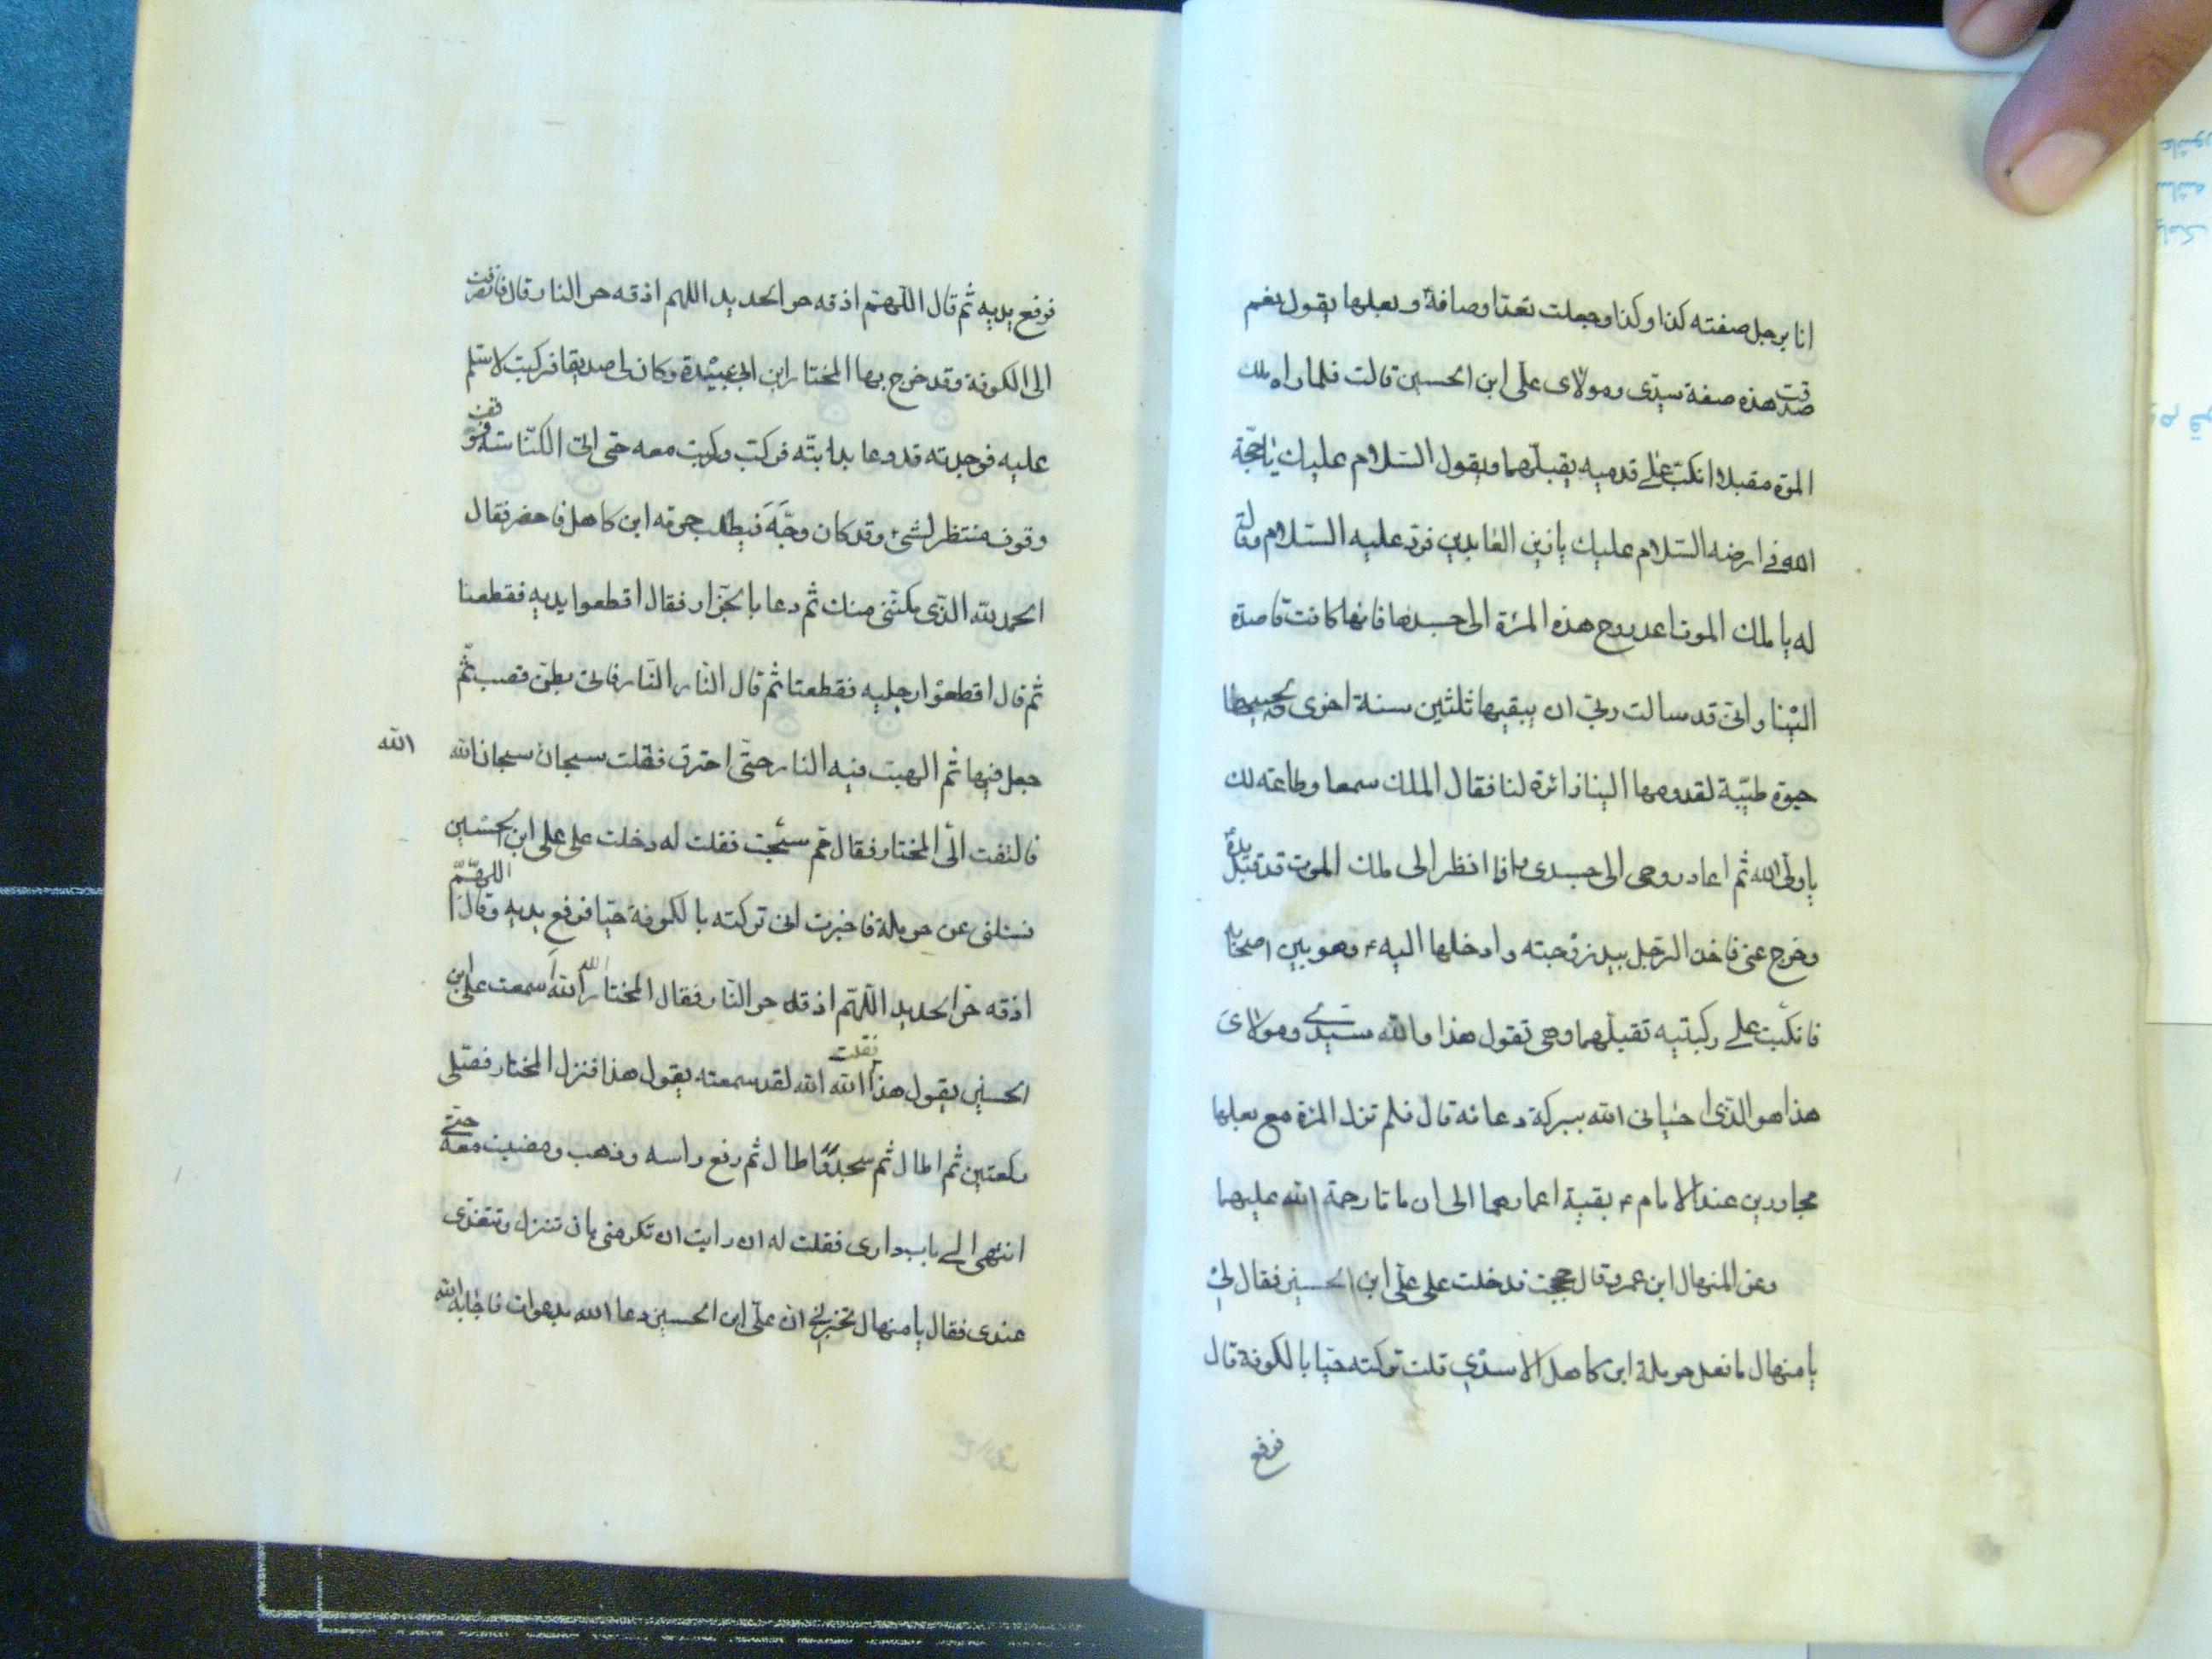 انا برجل صفته كذا وكذا وجعلت تعدّ اوصافه وبعلها يقول نعم
صدقت هذه صفة سيدى ومولاى علىّ ابن الحسين قالت فلما راه ملك
الموت مقبلا انكبّ على قدميه يقبلهما ويقول السّلام عليك يا حجّة
الله فى ارضه السّلام عليك يا زين العابدين فردّ عليه السّلام وقال
له يا ملك الموت اعد روح هذه المرئة الى جسدها فانها كانت قاصدة
الينا وانى قد سالت ربى ان يبقيها ثلثين سنة اخرى
حيوة طيّبة لقدومها الينا زائرة لنا فقال الملك سمعا وطاعة لك
يا ولىّ الله ثم اعاد روحى الى جسدى وانا انظر الى ملك الموت قد قبّل يده
وخرج عنى فاخذ الرّجل بيد زوجته وادخلها اليه ع وهو بين اصحابه
فانكبّت على ركبتيه تقبلهما وهى تقول هذا والله سيدى ومولاى
هذا هو الذى احيانى الله ببركة دعائه قال فلم تزل المرئة مع بعلها
مجاورين عند الامام ع بقية اعمارهما الى ان ماتا رحمة الله عليهما
وعن المنهال ابن عمرو قال حججت فدخلت على علىّ ابن الحسين فقال لى
يا منهال ما فعل حرملة ابن كاهل الاسدى قلت تركته حيّا بالكوفة قال
فرفع
فرفع يديه ثم قال اللّهمّ اذقه حر الحديد اللهم اذقه حر النار قال فانصرفت
الى الكوفة وقد خرج بها المختار ابن ابى عبيدة وكان لى صديقا فركبت لاسلم
عليه فوجدته قد دعا بدابّته فركب وركبت معه حتى اتى الكنّاسة فوقف
وقوف منتظر لشئ وقد كان وجّه فى طلب حرمله ابن كاهل فاحضر فقال
الحمد لله الذى مكننى منك ثم دعا بالجزّار فقال اقطعوا يديه فقطعتا
ثم قال اقطعوا رجليه فقطعتا ثم قال النّار النّار فاتى بطنّ قصب ثمّ
جعل فيها ثم الهبت فيه النار حتّى احترق فقلت سبحان سبحان الله
الله
فالتفت الىّ المختار فقال ممّ سبّحت فقلت له دخلت على على ابن الحسين
فسئلنى عن حرملة فاخبرت انى تركته بالكوفة حيّا فرفع يديه وقال اللّهمّ
اذقه حرّ الحديد اللّهمّ اذقه حر النّار فقال المختار الله الله اسمعت علىّ ابن
الحسين يقول هذا فقلت الله الله لقد سمعته يقول هذا فنزل المختار فصلّى
ركعتين ثم اطال ثم سجد واطال ثم رفع راسه وذهب ومضيت معه حتى
انتهى الى باب دارى فقلت له ان رايت ان تكرمنى بان تنزل وتتغدى
عندى فقال يا منهال تخبرنى ان علىّ ابن الحسين دعا الله بدعوات فاجابه الله